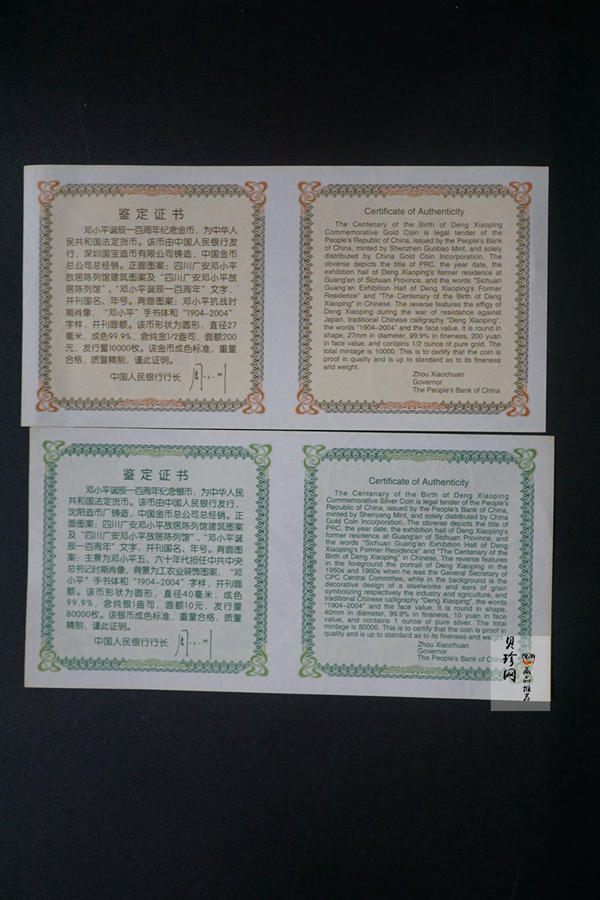 鉴定证书
邓小平诞辰一百周年纪念金币，为中华人
民共和国法定货币。该币由中国人民银行发
行，深圳国宝造币有限公司铸造，中国金币
总公司总经销。正面图案：四川广安邓小平
故居陈列馆建筑图案及“四川广安邓小平故
居陈列馆”、“邓小平诞辰一百周年”文字，
并刊国名、年号。背面图案：邓小平抗战时
期肖像，“邓小平”手书体和“1904-2004”
字样，并刊面额。该币形状为圆形，直径27
毫米，成色99.9%，含纯金1/2盎司，面额200
元，发行量10000枚。该金币成色标准，重量
合格，质量精制，谨此证明。
中国人民银行行长
Certificate of Authenticity
The Centenary of the Birth of Deng Xiaoping
Commemorative Gold Coin is legal tender of the
People's Republic of China, issued by the People's Bank
of China, minted by Shenzhen Guobao Mint, and solely
distributed by China Gold Coin Incorporation. The
obverse depicts the title of PRC, the year date, the
exhibition hall of Deng Xiaoping's former residence at
Guang'an of Sichuan Province, and the words "Sichuan
Guang'an Exhibition Hall of Deng Xiaoping's Former
Residence" and "The Centenary of the Birth of Deng
Xiaoping" in Chinese. The reverse features the effigy of
Deng Xiaoping during the war of resistance against
Japan, traditional Chinese calligraphy "Deng Xiaoping",
the words "1904-2004" and the face value. It is round in
shape, 27mm in diameter, 99.9% in fineness, 200 yuan
in face value, and contains 1/2 ounce of pure gold. The
total mintage is 10000. This is to certify that the coin is
proof in quality and is up to standard as to its fineness
and weight.
Zhou Xiaochuan
Governor
The People's Bank of China
鉴定证书
邓小平诞辰一百周年纪念银币，为中华人民
共和国法定货币。该币由中国人民银行发行，
沈阳造币厂铸造，中国金币总公司总经销。正
面图案：四川广安邓小平故居陈列馆建筑图案
及“四川广安邓小平故居陈列馆”、“邓小平诞
辰一百周年”文字，并刊国名、年号。背面图
案：主景为邓小平五、六十年代担任中共中央
总书记时期肖像，背景为工农业装饰图案，“邓
小平”手书体和“1904-2004”字样，并刊面
额。该币形状为圆形，直径40毫米，成色
99.9%，含纯银1盎司，面额10元，发行量
80000枚。该银币成色标准，重量合格，质量
精制，谨此证明。
中国人民银行行长
Certificate of Authenticity
The Centenary of the Birth of Deng Xiaoping
Commemorative Silver Coin is legal tender of the People's
Republic of China, issued by the People's Bank of China,
minted by Shenyang Mint, and solely distributed by China
Gold Coin Incorporation. The obverse depicts the title of
PRC, the year date, the exhibition hall of Deng Xiaoping's
former residence at Guang'an of Sichuan Province, and
the words "Sichuan Guang'an Exhibition Hall of Deng
Xiaoping's Former Residence" and "The Centenary of the
Birth of Deng Xiaoping" in Chinese. The reverse features
in the foreground the portrait of Deng Xiaoping in the
1950s and 1960s when he was the General Secretary of
CPC Central Committee, while in the background is the
decorative design of a steelworks and ears of grain
symbolizing respectively the industry and agriculture, and
traditional Chinese calligraphy "Deng Xiaoping", the words
"1904-2004" and the face value. It is round in shape,
40mm in diameter, 99.9% in fineness, 10 yuan in face
value, and contains 1 ounce of pure silver. The total
mintage is 80000. This is to certify that the coin is proof in
quality and is up to standard as to its fineness and weight.
Zhou Xiaochuan
Governor
The People's Bank of China
贝珍网